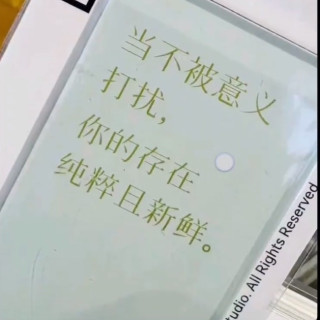 当不被意义
打扰，
你的存在
纯粹且新鲜。
tudio. All Rights Reserved